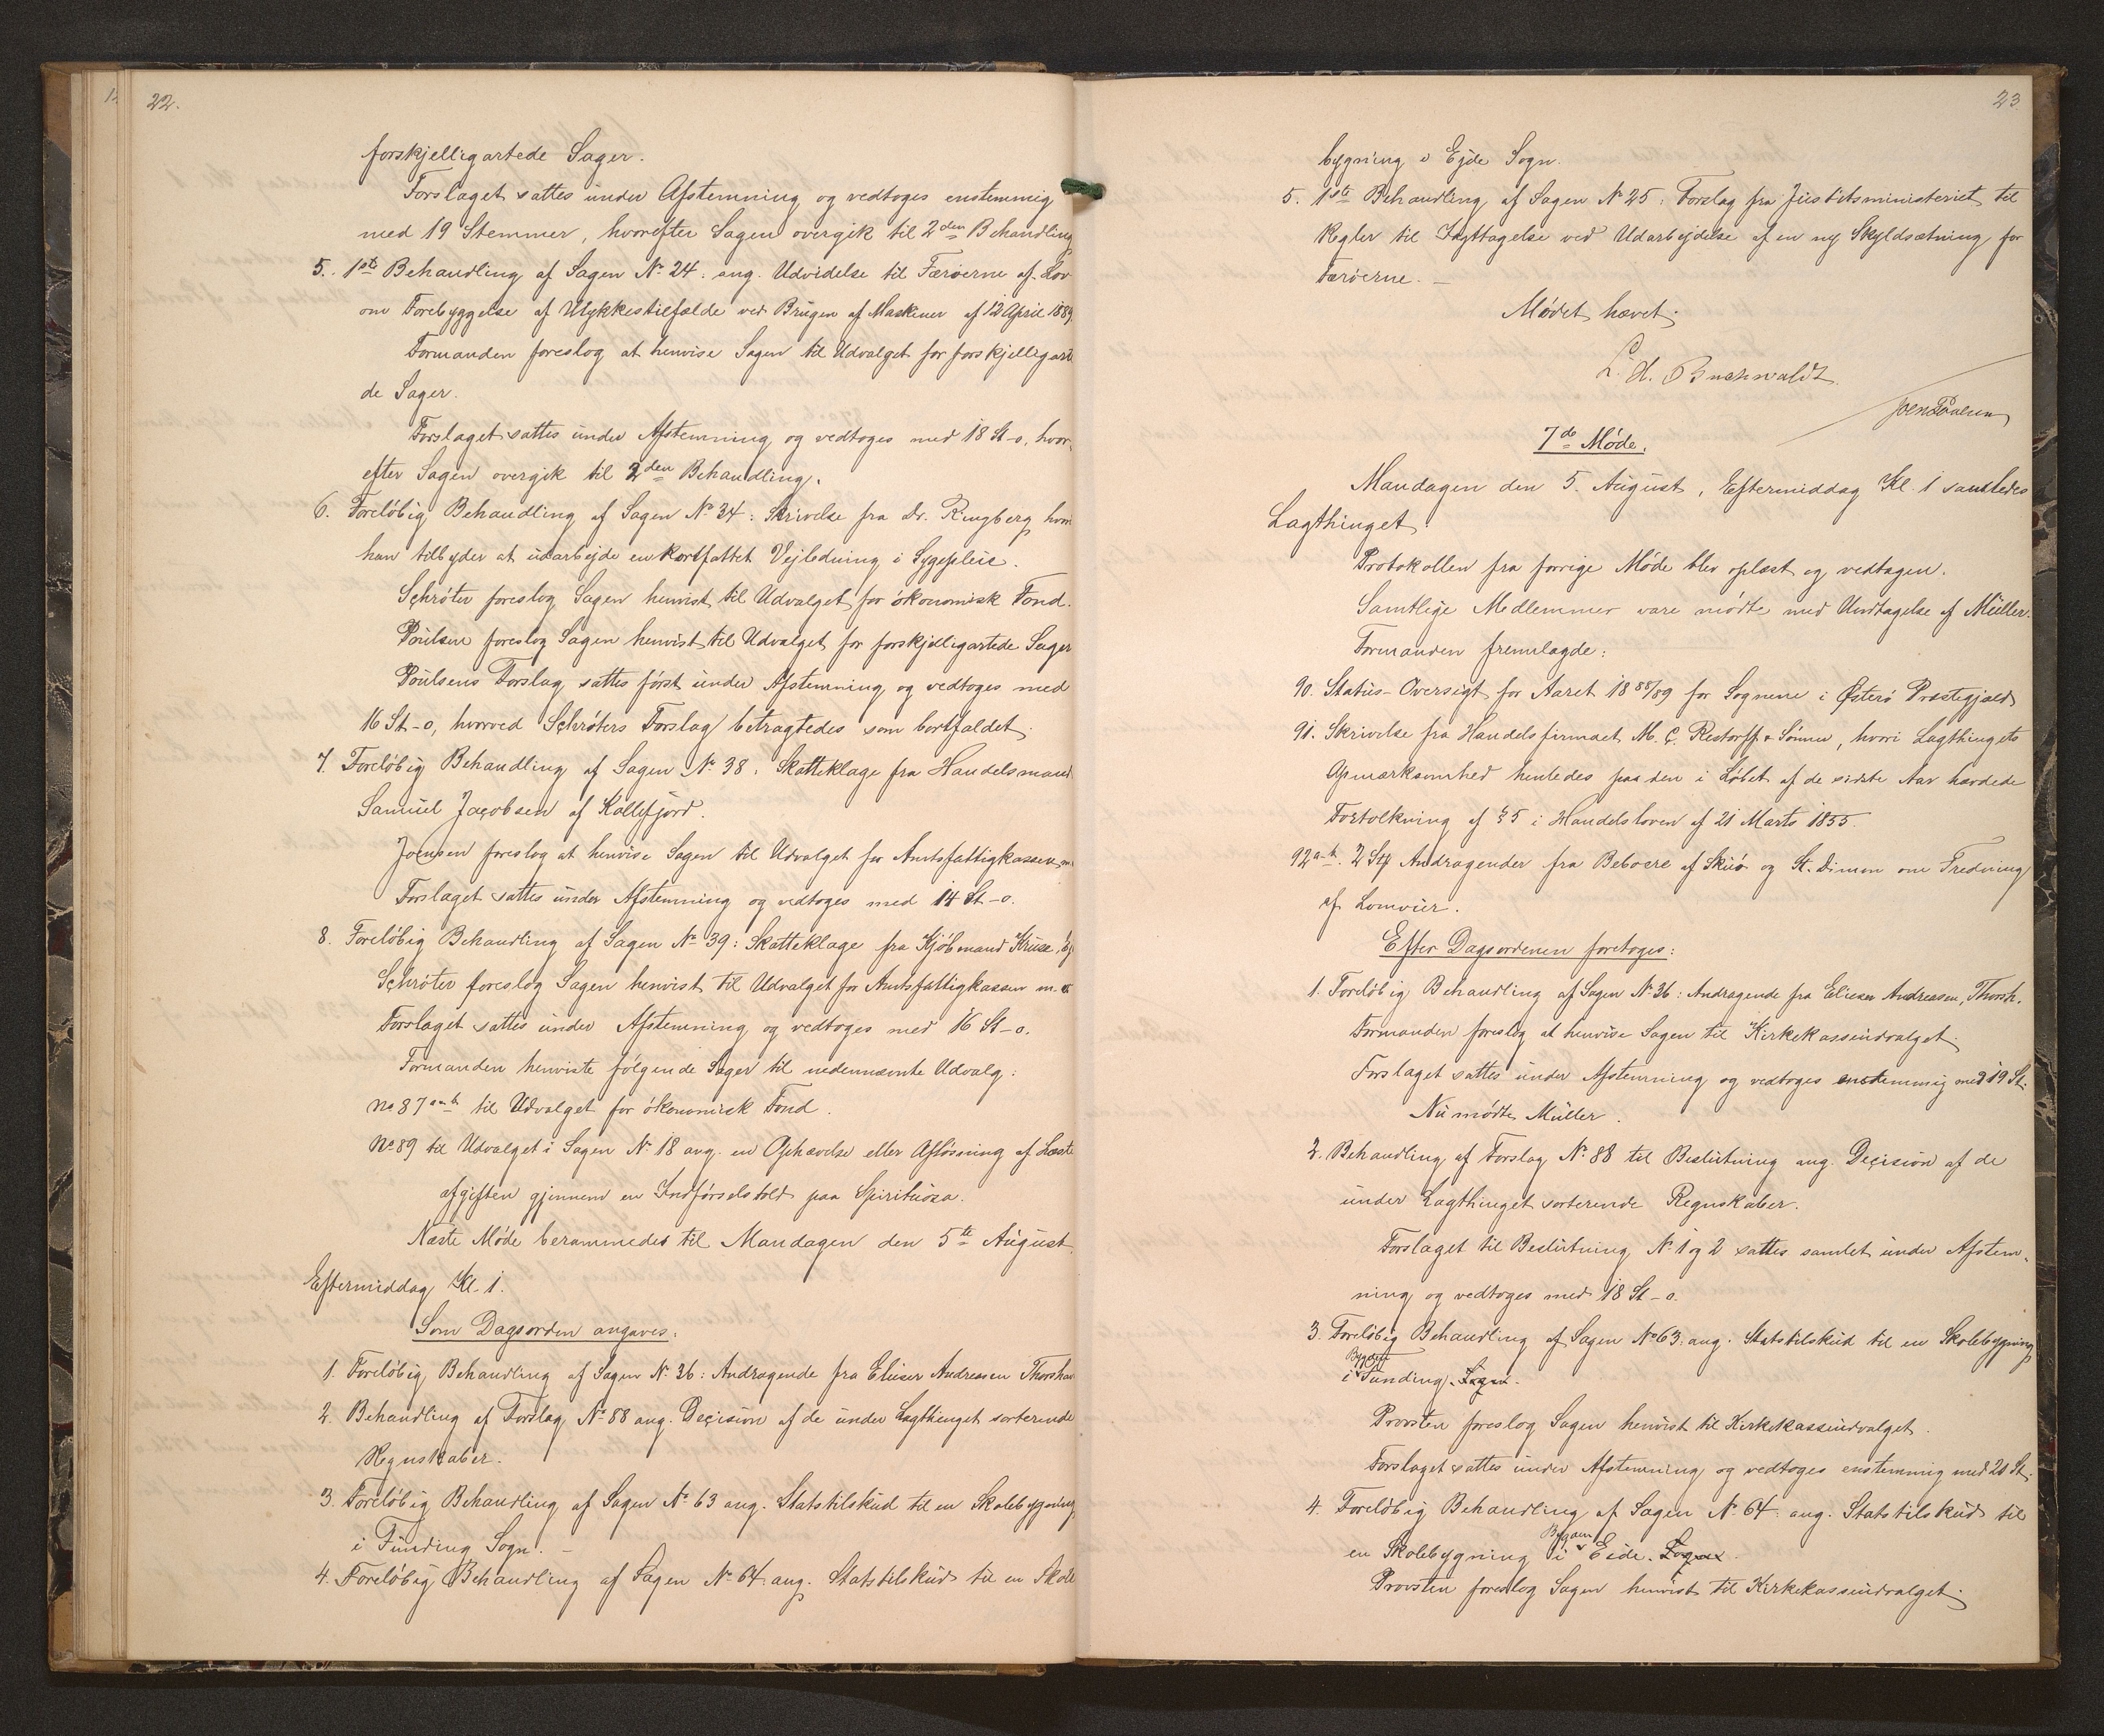 22.
forskjelligartede Sager.
Forslaget sattes under Afstemning og vedtoges enstemmig
med 19 Stemmer, hvorefter Sagen overgik til 2den Behandling
5. 1ste Behandling af Sagen No 24: ang. Udvidelse til Færøerne af Lov
om Forebyggelse af Ulykkestilfælde ved Brugen af Maskiner af 12 April 1889
Formanden foreslog at henvise Sagen til Udvalget for forskjelligarte
de Sager.
Forslaget sattes under Afstemning og vedtoges med 18 St-0, hvor-
efter Sagen overgik til 2den Behandling.
6. Foreløbig Behandling af Sagen No 34: Skrivelse fra Dr. Ringberg hvori
han tilbyder at udarbejde en kortfattet Vejledning i Sygepleie.
Schrøter foreslog Sagen henvist til Udvalget for økonomisk Fond.
Poulsen foreslog Sagen henvist til Udvalget for forskjelligartede Sager
Poulsens Forslag sattes først under Afstemning og vedtoges med
16 St-0, hvorved Schrøters Forslag betragtedes som bortfaldet.
7. Foreløbig Behandling af Sagen No 38. Skatteklage fra Handelsmand
Samuel Jacobsen af Kollefjord.
Joensen foreslog at henvise Sagen til Udvalget for Amtsfattigkassen m.
Forslaget sattes under Afstemning og vedtoges med 14 St-0.
8. Foreløbig Behandling af Sagen No 39: Skatteklage fra Kjøbmand Kruse, Ej
Schrøter foreslog Sagen henvist til Udvalget for Amtsfattigkassen m.
Forslaget sattes under Afstemning og vedtoges med 16 St-0.
Formanden henviste følgende Sager til nedennævnte Udvalg:
No 87 a-b til Udvalget for økonomisk Fond.
No 89 til Udvalget i Sagen No 18 ang. en Ophævelse eller Afløsning af Læste
afgiften gjennem en Indførselstold paa Spirituosa.
Næste Møde berammedes til Mandagen den 5te August
Eftermiddag Kl. 1.
Som Dagsorden angaves:
1. Foreløbig Behandling af Sagen No 36: Andragende fra Elieser Andreasen Thorshav
2. Behandling af Forslag No 88 ang. Decision af de under Lagthinget sorterende
Regnskaber.
3. Foreløbig Behandling af Sagen No 63 ang. Statstilskud til en Skolebygning
i Funding Sogn. –
4. Foreløbig Behandling af Sagen No 64: ang. Statstilskud til en Skole
23
bygning i Ejde Sogn.
5. 1ste Behandling af Sagen No 25: Forslag fra Justitsministeriet til
Regler til Iagttagelse ved Udarbejdelse af en ny Skyldsætning for
Færøerne. –
Mødet hævet.
L. H. Buchwaldt
7de Møde.
Mandagen den 5. August, Eftermiddag Kl. 1 samledes
Lagthinget
Protokollen fra forrige Møde blev oplæst og vedtagen.
Samtlige Medlemmer vare mødte med Undtagelse af Müller.
Formanden fremlagde:
90. Status-Oversigt for Aaret 1888/89 for Sognene i Østerø Præstegjæld
91. Skrivelse fra Handelsfirmaet M. C. Restorff & Sønner, hvori Lagthingets
Opmærksomhed henledes paa den i Løbet af de sidste Aar hævdede
Fortolkning af § 5 i Handelsloven af 21 Marts 1855.
92 a-b. 2 Stk Andragender fra Beboere af Skuø og St. Dimon om Fredning
af Lomvier.
Efter Dagsordenen foretoges:
1. Foreløbig Behandling af Sagen No 36: Andragende fra Elieser Andreasen, Thorsh.
Formanden foreslog at henvise Sagen til Kirkekasseudvalget.
Forslaget sattes under Afstemning og vedtoges enstemmig med 19 St.
Nu mødte Müller.
2. Behandling af Forslag No 88 til Beslutning ang. Decision af de
under Lagthinget sorterende Regnskaber.
Forslaget til Beslutning No 1 og 2 sattes samlet under Afstem-
ning og vedtoges med 18 St-0.
3. Foreløbig Behandling af Sagen No 63: ang. Statstilskud til en Skolebygning
i Bygden Funding. Sogn.
Provsten foreslog Sagen henvist til Kirkekasseudvalget.
Forslaget sattes under Afstemning og vedtoges enstemmig med 20 St.
4. Foreløbig Behandling af Sagen No 64: ang. Statstilskud til
en Skolebygning i Bygden Eide. Sogn.
Provsten foreslog Sagen henvist til Kirkekasseudvalget.